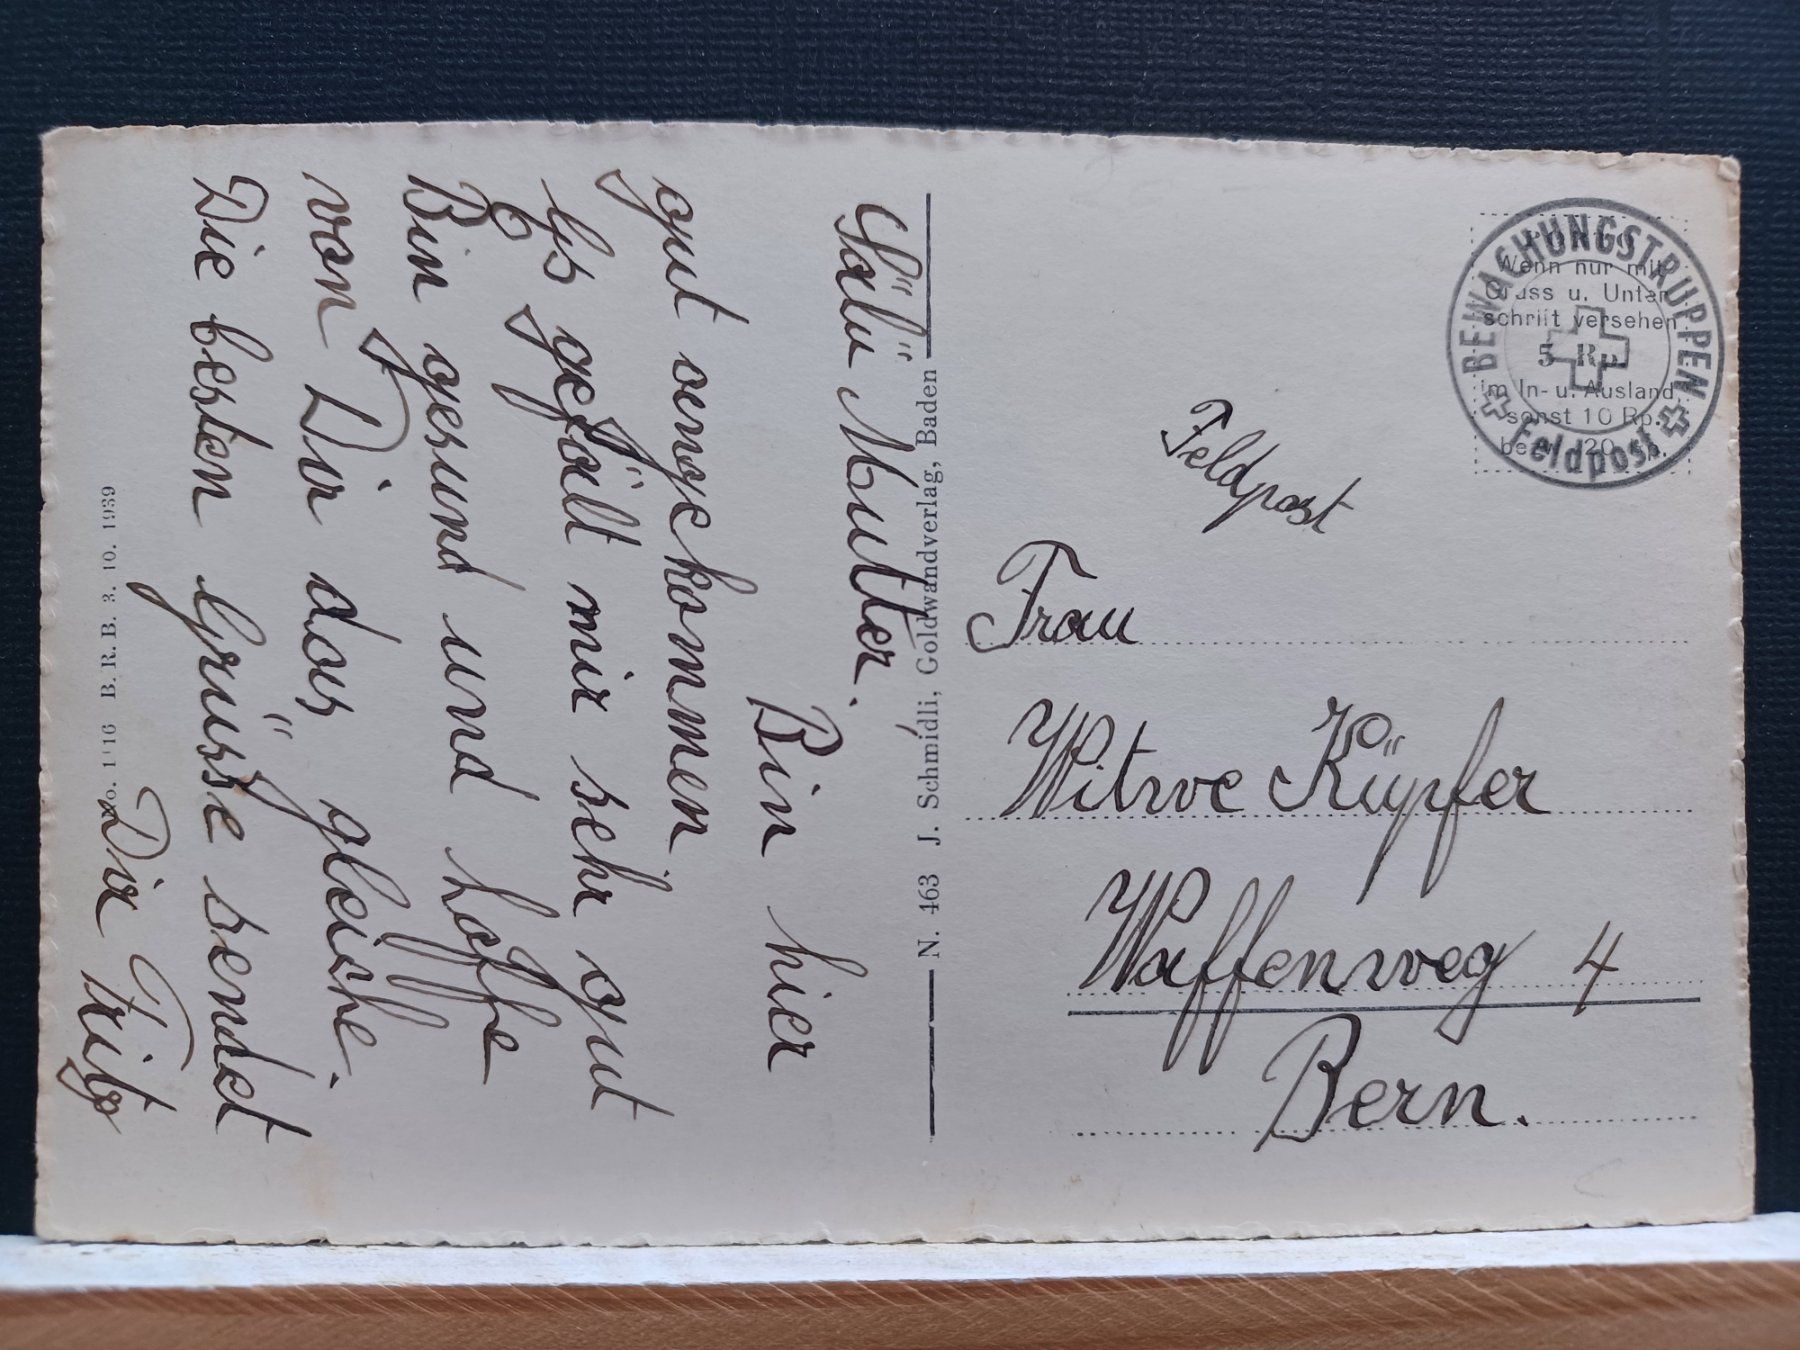 Sälü Mutter.
Bin hier
gut angekommen
Es gefält mir sehr gut
Bin gesund und hoffe
von Dir das gleiche.
Die besten Grüsse sendet
Dir Fritz
1116 B. R. B. 3. 10. 1939
N. 463 J. Schmidli, Goldwandverlag, Baden
BEWACHUNGSTRUPPEN
Feldpost
Wenn nur mit
Gruss u. Unter-
schrift versehen
5 Rp.
im In- u. Ausland,
sonst 10 Rp.
20
Feldpost
Frau
Witwe Küpfer
Waffenweg 4
Bern.